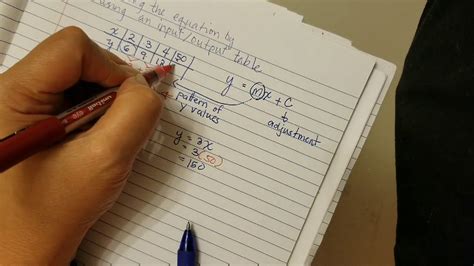 ing the equation by
using an input/output table
x | 2 | 3 | 4 | 50
y | 6 | 9 | 12
y = mx + c
adjustment
pattern of
y values
y = 3x
= 3(50)
= 150